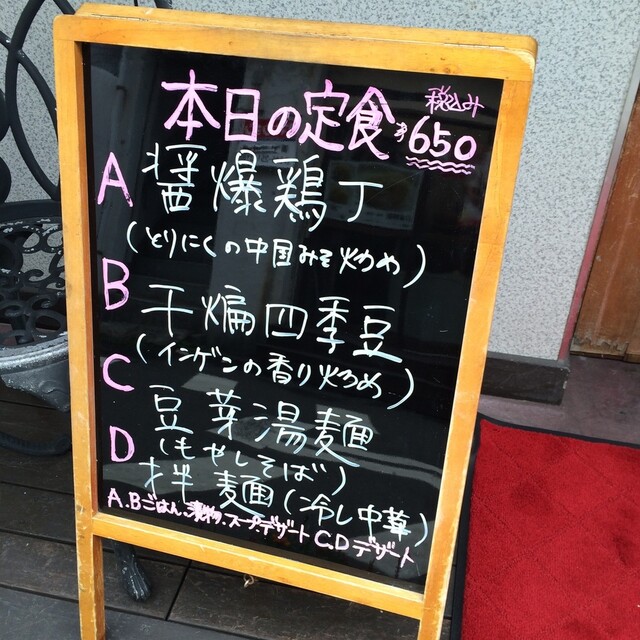 本日の定食 税込み ¥650
A 醤爆鶏丁
(とりにくの中国みそ炒め)
B 干煸四季豆
(インゲンの香り炒め)
C 豆芽湯麺
(もやしそば)
D 拌麺(冷し中華)
A.Bごはん、漬物、スープ、デザート C,Dデザート